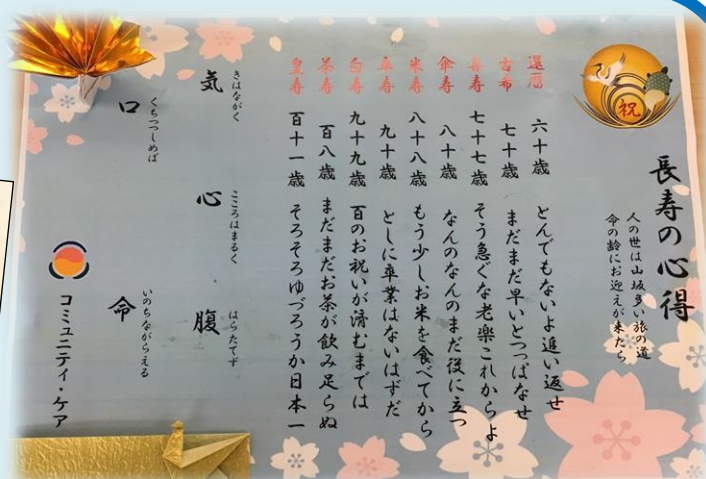 祝
長寿の心得
人の世は山坂多い旅の道
命の齢にお迎えが来たら
還暦 六十歳 とんでもないよ追い返せ
古希 七十歳 まだまだ早いとつっぱなせ
喜寿 七十七歳 そう急ぐな老楽これからよ
傘寿 八十歳 なんのなんのまだ役に立つ
米寿 八十八歳 もう少しお米を食べてから
卒寿 九十歳 としに卒業はないはずだ
白寿 九十九歳 百のお祝いが済むまでは
茶寿 百八歳 まだまだお茶が飲み足らぬ
皇寿 百十一歳 そろそろゆづろうか日本一
きはながく こころはまるく はらたてず
気 心 腹
くちつつしめば いのちながらえる
口 命
コミュニティ・ケア